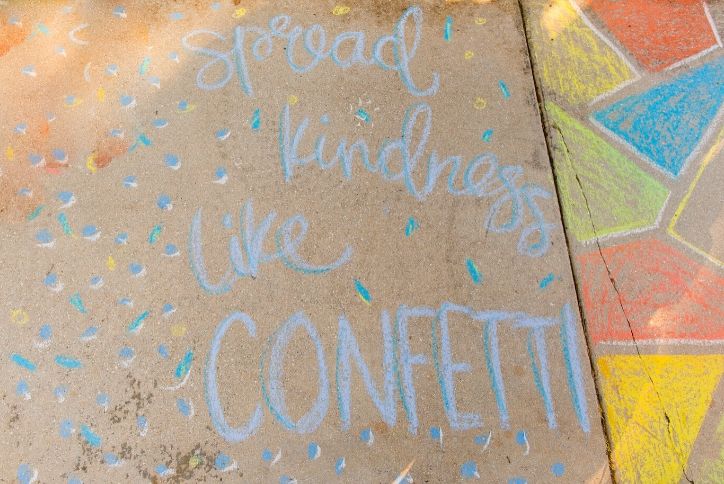 spread
kindness
like
CONFETTI